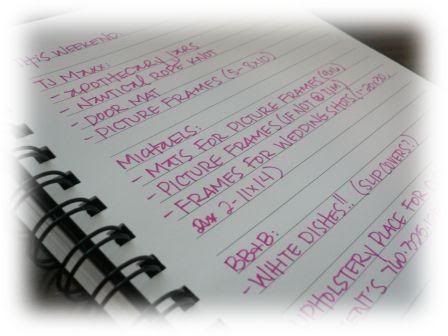 THIS WEEKEND
TJ MAXX:
- APOTHECARY JARS
- NAUTICAL ROPE KNOT
- DOOR MAT
- PICTURE FRAMES (5-8x10)
MICHAELS:
- MATS FOR PICTURE FRAMES
- PICTURE FRAMES (IF NOT @ TJM)
- FRAMES FOR WEDDING SHOTS
2-11x14)
BB&B:
- WHITE DISHES!! (SLIPCOVERS?)
UPHOLSTERY PLACE FOR
760.325